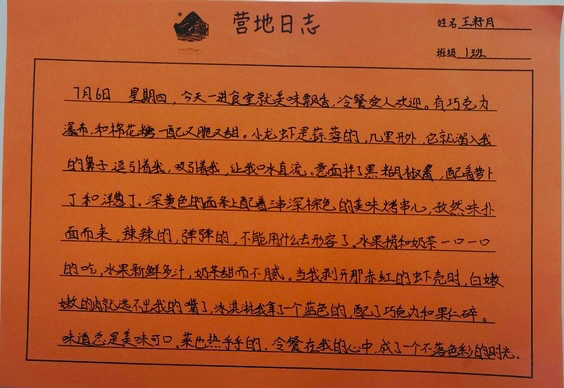 营地日志
姓名 王籽月
班级 1班
7月6日 星期四,今天一进食堂就美味飘香,冷餐受人欢迎。有巧克力
瀑布,和棉花糖一配又脆又甜。小龙虾是蒜蓉的,几里开外,它就溜入我
的鼻子逗引着我,吸引着我,让我口水直流。意面拌了黑胡椒酱,配着萝卜
丁和洋葱丁。深黄色的面条上配着三串深棕色的美味烤串心,孜然味扑
面而来,辣辣的,弹弹的,不能用什么去形容了。水果捞和奶茶一口一口
的吃,水果新鲜多汁,奶茶甜而不腻。当我剥开那赤红的虾壳时,白嫩
嫩的肉就逃不出我的嘴了,冰淇淋我拿了一个蓝色的,配了巧克力和果仁碎。
味道总是美味可口,菜也热乎乎的,冷餐在我的心中,成了一个不落色彩的时光.